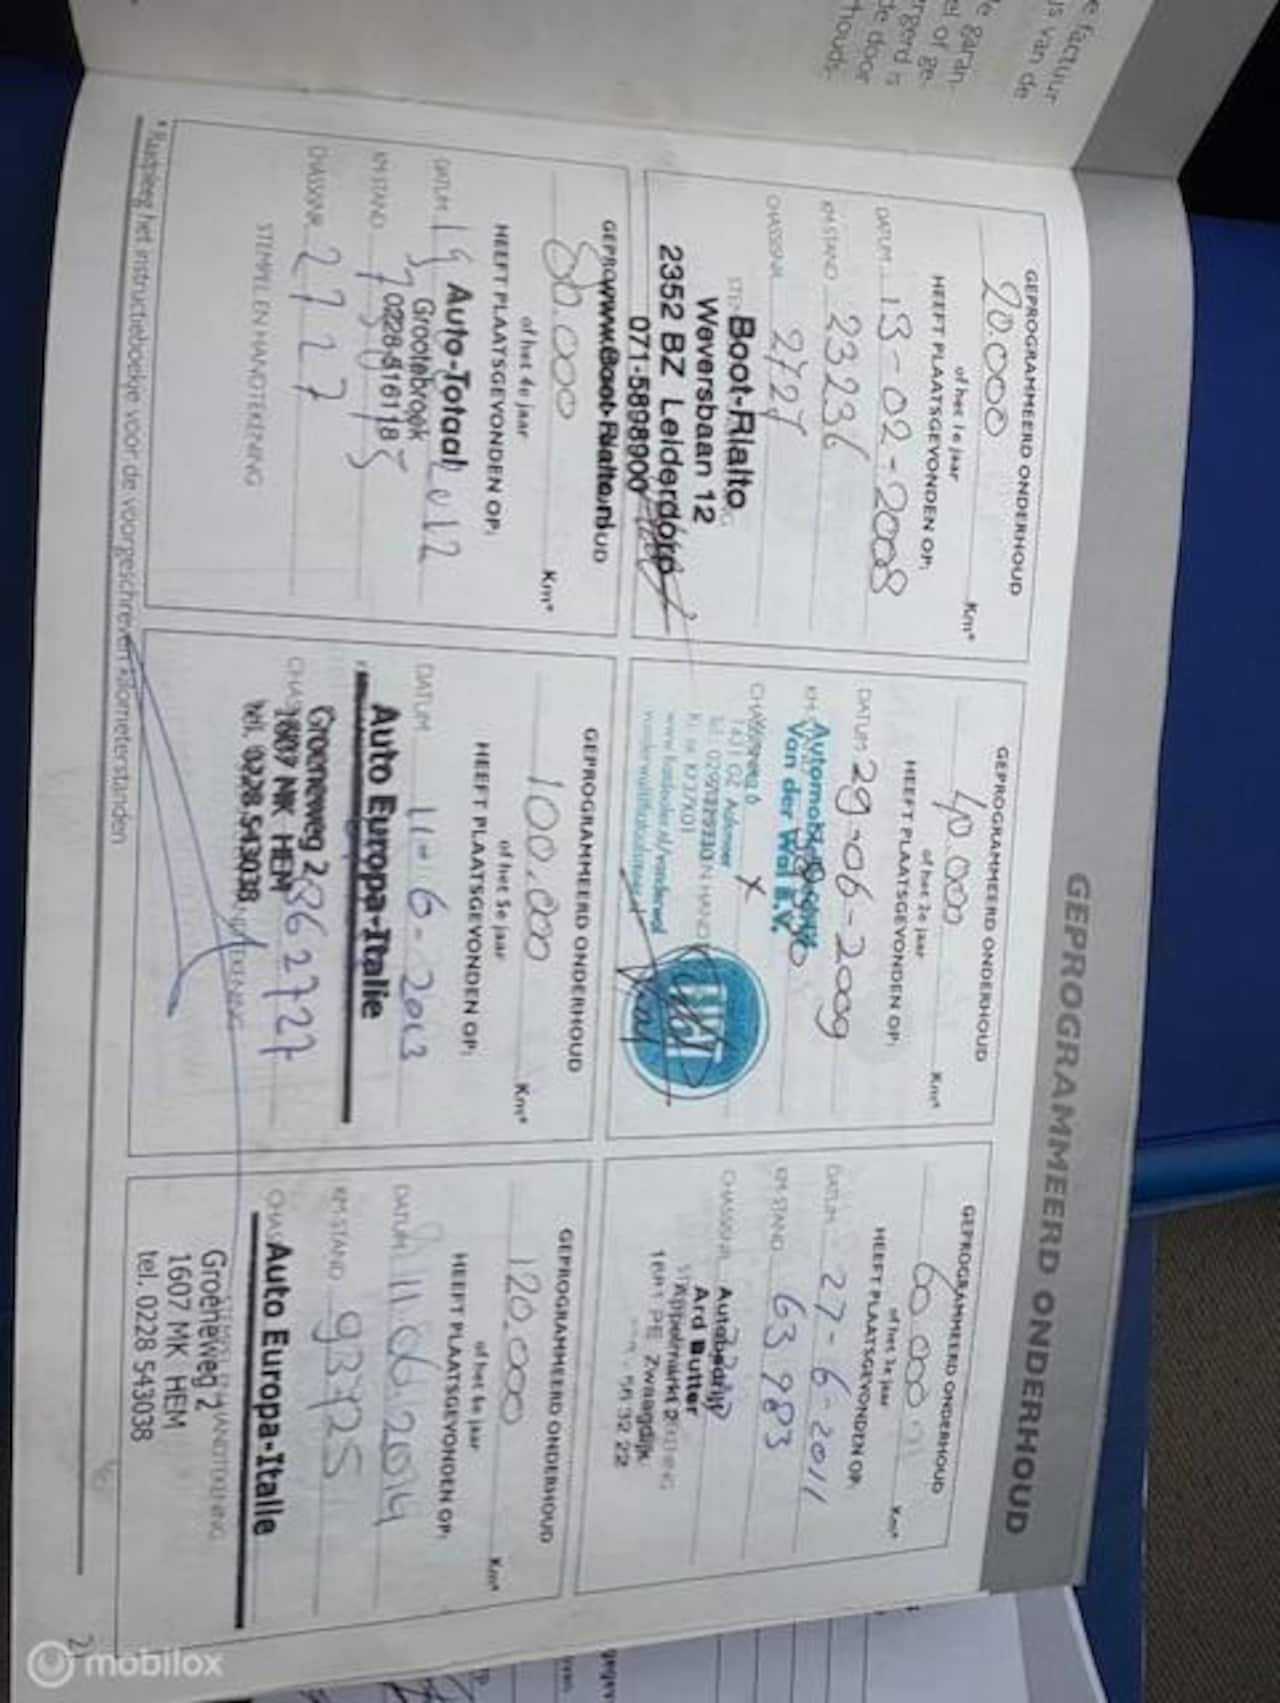 e factuur
is van de
garan-
el of ge-
rgerd is
de door
houds-
GEPROGRAMMEERD ONDERHOUD
GEPROGRAMMEERD ONDERHOUD
20.000 Km*
of het 1e jaar
HEEFT PLAATSGEVONDEN OP:
DATUM 13-02-2008
KM-STAND 23236
CHASSISNR. 2727
Boot-Rialto
Weversbaan 12
2352 BZ Leiderdorp
071-5898900
GEPROGRAMMEERD ONDERHOUD
40.000 Km*
of het 2e jaar
HEEFT PLAATSGEVONDEN OP:
DATUM 29-06-2009
Van der Wal B.V.
1431 GZ Aalsmeer
GEPROGRAMMEERD ONDERHOUD
60.000 Km*
of het 3e jaar
HEEFT PLAATSGEVONDEN OP:
DATUM 27-6-2011
KM-STAND 63983
CHASSISNR.
Autobedrijf
Ard Butter
Appelmarkt
PE Zwaagdijk
58 32 22
80.000 Km*
of het 4e jaar
HEEFT PLAATSGEVONDEN OP:
DATUM 19
2012
Auto-Totaal
Grootebroek
0228-516118
KM-STAND
CHASSISNR. 2727
STEMPEL EN HANDTEKENING
GEPROGRAMMEERD ONDERHOUD
100.000 Km*
of het 5e jaar
HEEFT PLAATSGEVONDEN OP:
DATUM 11-6-2013
Auto Europa-Italie
Groeneweg 2
1607 MK HEM
tel. 0228 543038
362727
GEPROGRAMMEERD ONDERHOUD
120.000 Km*
of het 6e jaar
HEEFT PLAATSGEVONDEN OP:
DATUM 11.06.2014
KM-STAND 93725
Auto Europa-Italie
Groeneweg 2
1607 MK HEM
tel. 0228 543038
* Raadpleeg het instructieboekje voor de voorgeschreven kilometerstanden
mobilox